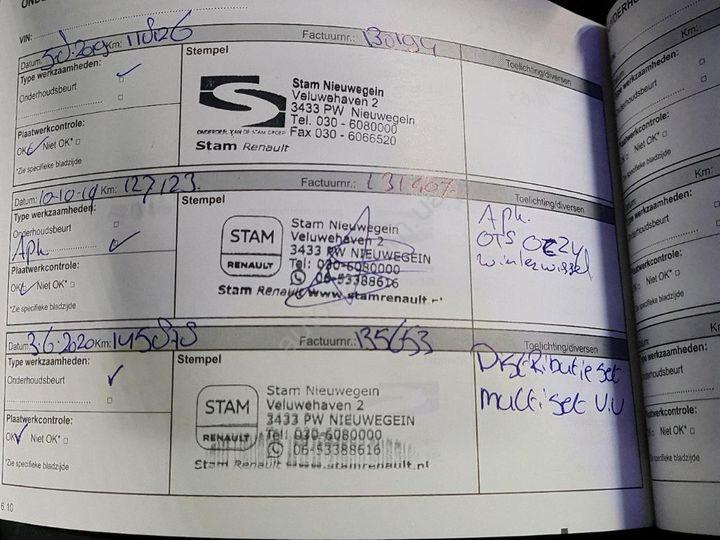 VIN:
Datum: Km: 110826 Factuurnr.: 130194
Type werkzaamheden:
Onderhoudsbeurt
Plaatwerkcontrole:
OK Niet OK*
*Zie specifieke bladzijde
Stempel
Stam Nieuwegein
Veluwehaven 2
3433 PW Nieuwegein
Tel. 030 - 6080000
Fax 030 - 6066520
ONDERDEEL VAN DE STAM GROEP
Stam Renault
Toelichting/diversen
Datum: 10-10-19 Km: 127123. Factuurnr.:
Type werkzaamheden:
Onderhoudsbeurt
Apk
Plaatwerkcontrole:
OK Niet OK*
*Zie specifieke bladzijde
Stempel
STAM
RENAULT
Stam Nieuwegein
Veluwehaven 2
3433 PW NIEUWEGEIN
Tel: 030-6080000
06-53388616
Stam Renault www.stamrenault.nl
Toelichting/diversen
Apk.
OTS
winterwissel
Datum: 3.6.2020 Km: 145878 Factuurnr.: 135653
Type werkzaamheden:
Onderhoudsbeurt
Plaatwerkcontrole:
OK Niet OK*
*Zie specifieke bladzijde
Stempel
STAM
RENAULT
Stam Nieuwegein
Veluwehaven 2
3433 PW NIEUWEGEIN
Tel: 030-6080000
06-53388616
Stam Renault www.stamrenault.nl
Toelichting/diversen
Distributieset
multiset V.V
6.10
Km:
Type werkzaamheden:
Onderhoudsbeurt
Plaatwerkcontrole:
Niet OK*
*Zie specifieke bladzijde